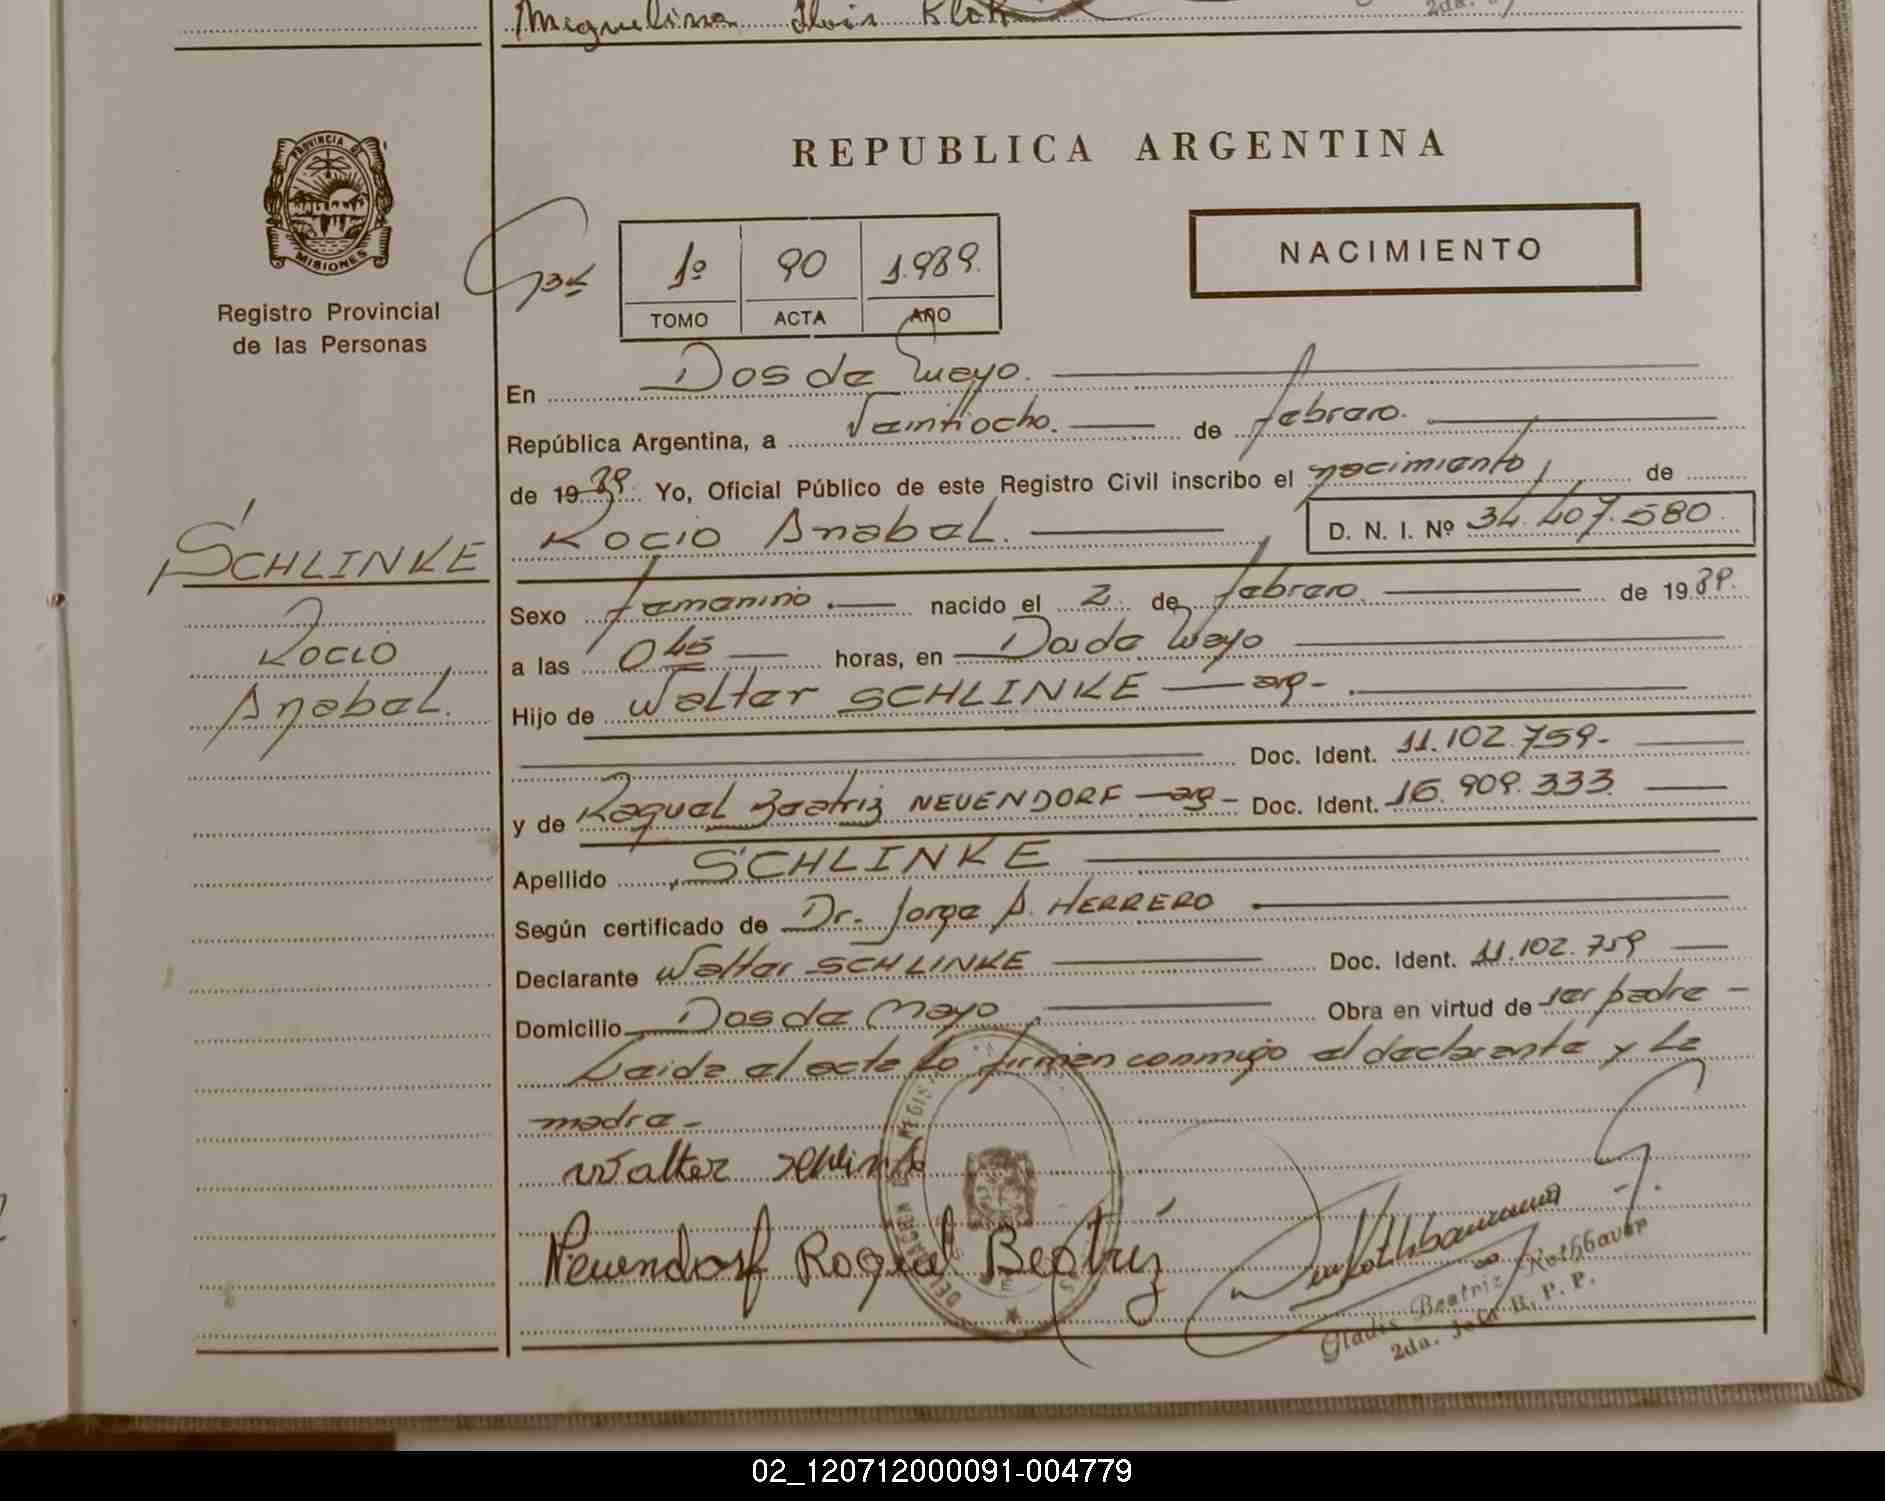 Miguelina
PROVINCIA DE
MISIONES
Registro Provincial
de las Personas
REPUBLICA ARGENTINA
NACIMIENTO
1º 90 1.989.
TOMO ACTA AÑO
En Dos de Mayo.
República Argentina, a Veintiocho. de febrero.
de 1989. Yo, Oficial Público de este Registro Civil inscribo el nacimiento de
Rocio Anabel. D. N. I. Nº 34.407.580.
SCHLINKE
Rocio
Anabel.
Sexo femenino. nacido el 2 de febrero. de 1989.
a las 0 45 horas, en Dos de Mayo
Hijo de Walter SCHLINKE - arg -
Doc. Ident. 11.102.759.-
y de Raquel Beatriz NEUENDORF - arg - Doc. Ident. 16.909.333.
Apellido SCHLINKE
Según certificado de Dr. Jorge A. HERRERO
Declarante Walter SCHLINKE Doc. Ident. 11.102.759
Domicilio Dos de Mayo Obra en virtud de ser padre -
Leida el acta lo firman conmigo el declarante y la
madre.-
Walter Schlinke
Neuendorf Raquel Beatriz
Gladis Beatriz Rothbauer
2da. Jefe R. P. P.
02_120712000091-004779